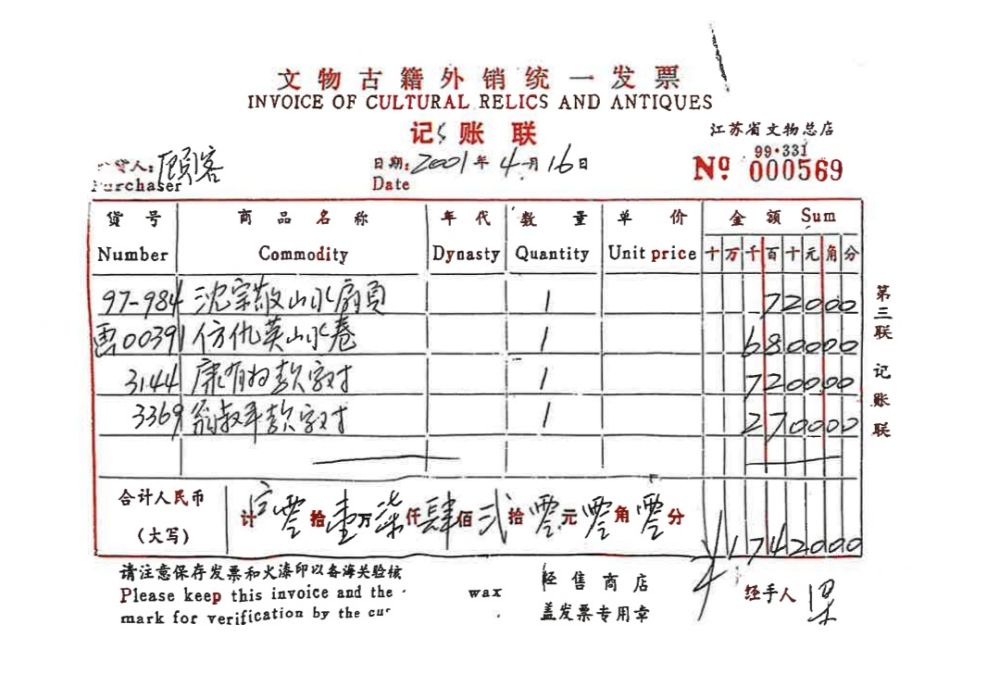 文物古籍外销统一发票
INVOICE OF CULTURAL RELICS AND ANTIQUES
记账联
江苏省文物总店
99·331
人：顾客 日期：2001年4月16日 Nº 000569
Purchaser Date
货号 商品名称 年代 数量 单价 金额 Sum
Number Commodity Dynasty Quantity Unit price 十万千百十元角分
97-984 沈宗敬山水扇页 1 72000
画00391 仿仇英山水卷 1 680000
3144 康有为款字对 1 720000
3369 翁叔平款字对 1 270000
合计人民币（大写） 计零拾壹万柒仟肆佰贰拾零元零角零分 ¥1742000
第三联 记账联
请注意保存发票和火漆印以备海关验核
Please keep this invoice and the wax
mark for verification by the cus
经售商店
盖发票专用章
经手人 梁